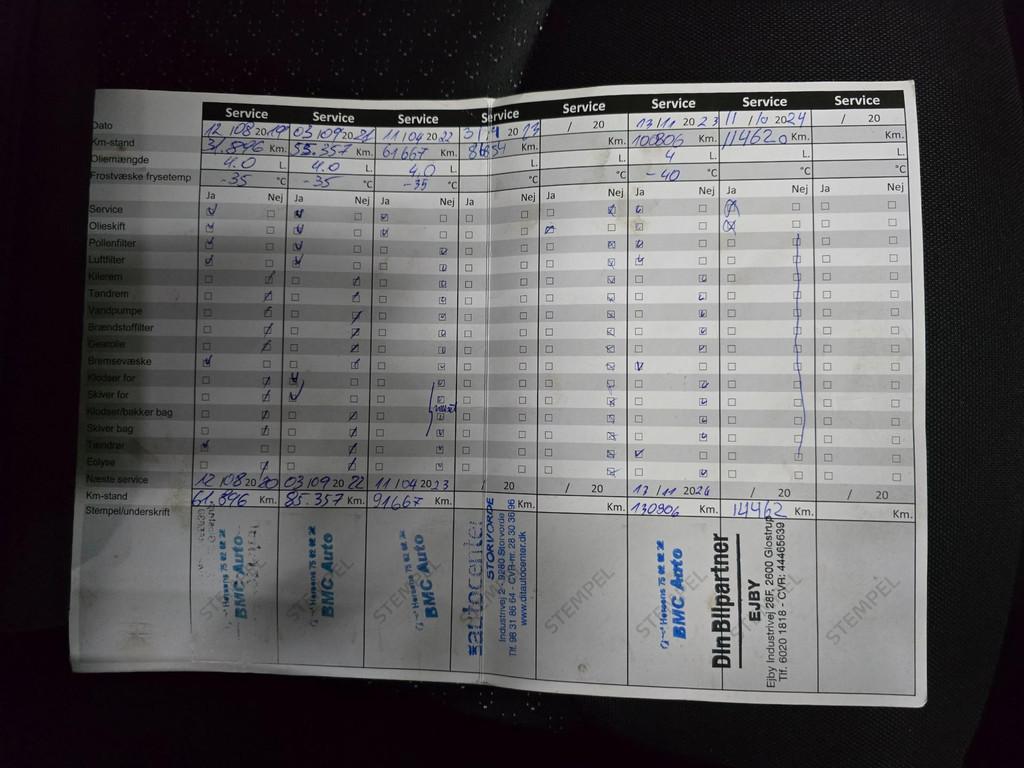 Service Service Service Service Service Service Service Service
Dato 12 / 08 20 19 03 / 09 20 21 11 / 04 20 22 / 20 13 / 11 20 23 11 / 10 20 24 / 20
Km-stand 31.896 Km. 55.357 Km. 61667 Km. Km. 100806 Km. 114620 Km. Km.
Oliemængde 4.0 L. 4.0 L. 4.0 L. L. L. 4 L. L. L.
Frostvæske frysetemp -35 °C -35 °C -35 °C °C °C -40 °C °C °C
Ja Nej Ja Nej Ja Nej Ja Nej Ja Nej Ja Nej Ja Nej Ja Nej
Service
Olieskift
Pollenfilter
Luftfilter
Kilerem
Tandrem
Vandpumpe
Brændstoffilter
Gearolie
Bremsevæske
Klodser for
Skiver for
Klodser/bakker bag
Skiver bag
Tændrør
Eolyse
Næste service 12 / 08 20 20 03 / 09 20 22 11 / 04 20 23 / 20 / 20 13 / 11 20 24 / 20 / 20
Km-stand 61.896 Km. 85.357 Km. 91667 Km. Km. Km. 130806 Km. 14462 Km. Km.
Stempel/underskrift
BMC Auto
STEMPEL
BMC Auto
STEMPEL
BMC Auto
autocenter
STORVORDE
Industrivej 2 - 9280 Storvorde
Tlf. 98 31 86 64 - CVR-nr. 28 30 36 96
www.ditautocenter.dk
STEMPEL
STEMPEL
BMC Auto
Din Bilpartner
EJBY
Ejby Industrivej 28F, 2600 Glostrup
Tlf. 6020 1818 - CVR: 44465639
STEMPEL